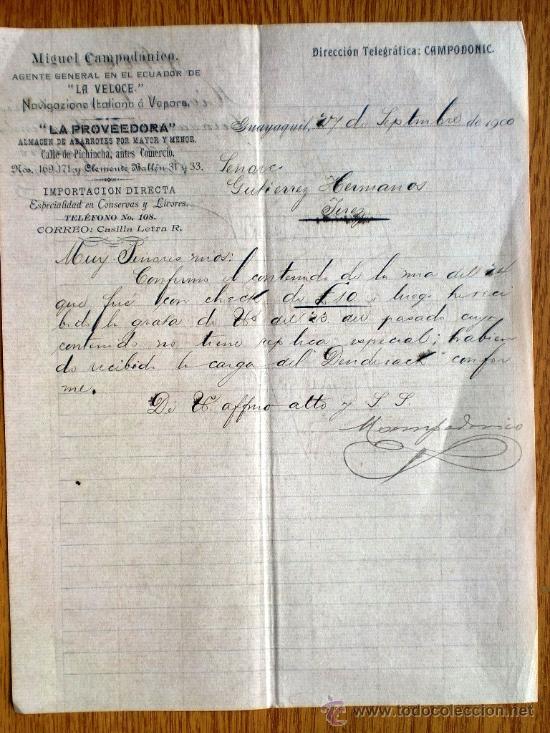 Miguel Campodónico.
AGENTE GENERAL EN EL ECUADOR DE
"LA VELOCE."
Navigazione Italiana á Vapore.
"LA PROVEEDORA"
ALMACEN DE ABARROTES POR MAYOR Y MENOR.
Calle de Pichincha, antes Comercio.
Nos. 169, 171 y Clemente Ballén 31 y 33.
IMPORTACION DIRECTA
Especialidad en Conservas y Licores.
TELÉFONO No. 108.
CORREO: Casilla Letra R.
Dirección Telegráfica: CAMPODONIC.
Guayaquil, 27 de Septmbre de 1900
Senore
Gutierrez Hermanos
Jerez
Muy Senores mios:
Confirmo el contenido de la mia del 24
que fue con check de £10 y luego he reci
bido la grata de Us del 23 del pasado cuyo
contenido no tiene replica especial; habien
do recibido la carga del confor
me.
De U affmo atto y S S
MCampodonico
www.todocoleccion.net